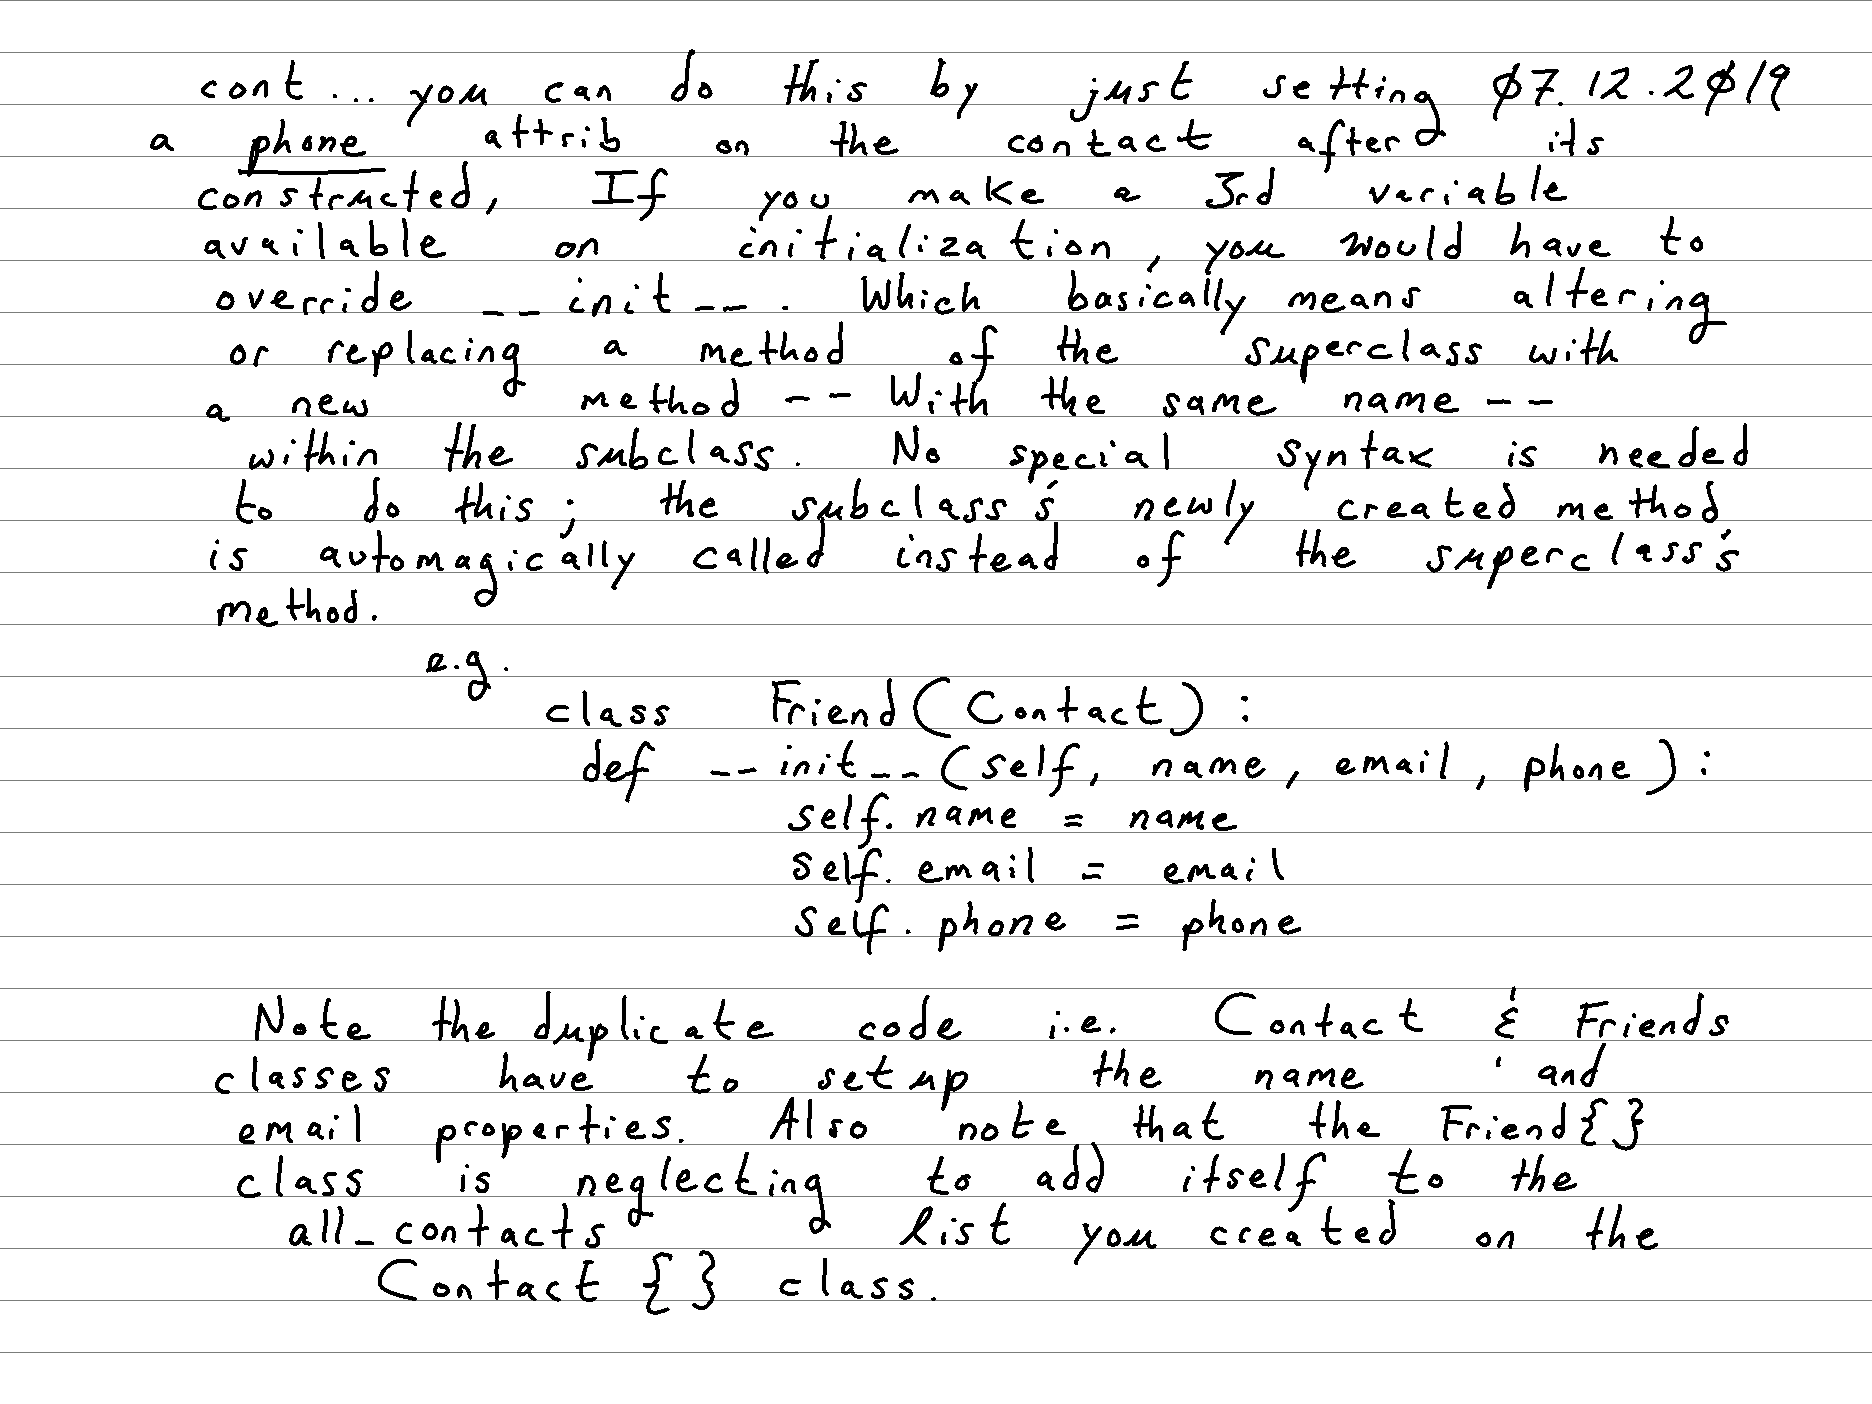 cont... you can do this by just setting Ø7.12.2Ø19
a phone attrib on the contact after its
constructed, If you make a 3rd variable
available on initialization, you would have to
override __init__. Which basically means altering
or replacing a method of the superclass with
a new method -- With the same name --
within the subclass. No special syntax is needed
to do this; the subclass's newly created method
is automagically called instead of the superclass's
method.
e.g.
class Friend(Contact):
def __init__(self, name, email, phone):
self.name = name
self.email = email
self.phone = phone
Note the duplicate code i.e. Contact & Friends
classes have to setup the name and
email properties. Also note that the Friend{}
class is neglecting to add itself to the
all_contacts list you created on the
Contact {} class.